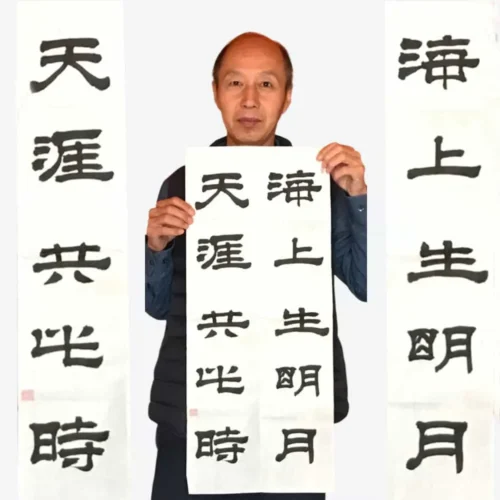 海上生明月
海上生明月
天涯共此時
天涯共此時